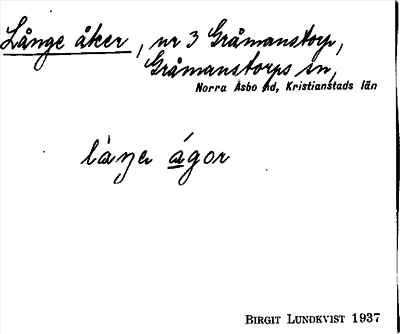 Långe åker, nr 3 Gråmanstorp,
Gråmanstorps sn,
Norra Åsbo hd, Kristianstads län
láŋer ágor
BIRGIT LUNDKVIST 1937